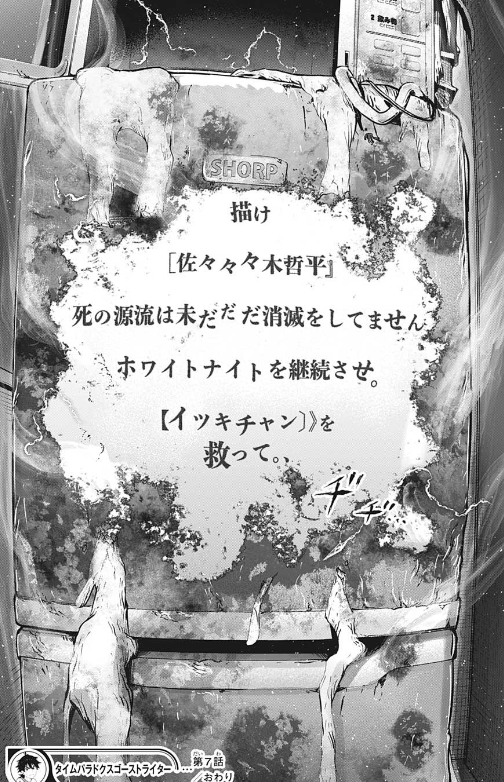 2 飲み物
SHORP
描け
［佐々々々木哲平』
死の源流は未だだだ消滅をしてません
ホワイトナイトを継続させ。
【イツキチャン〕》を
救って。、
ヂ゙
ヂ゙…
タイムパラドクスゴーストライター
第7話
おわり